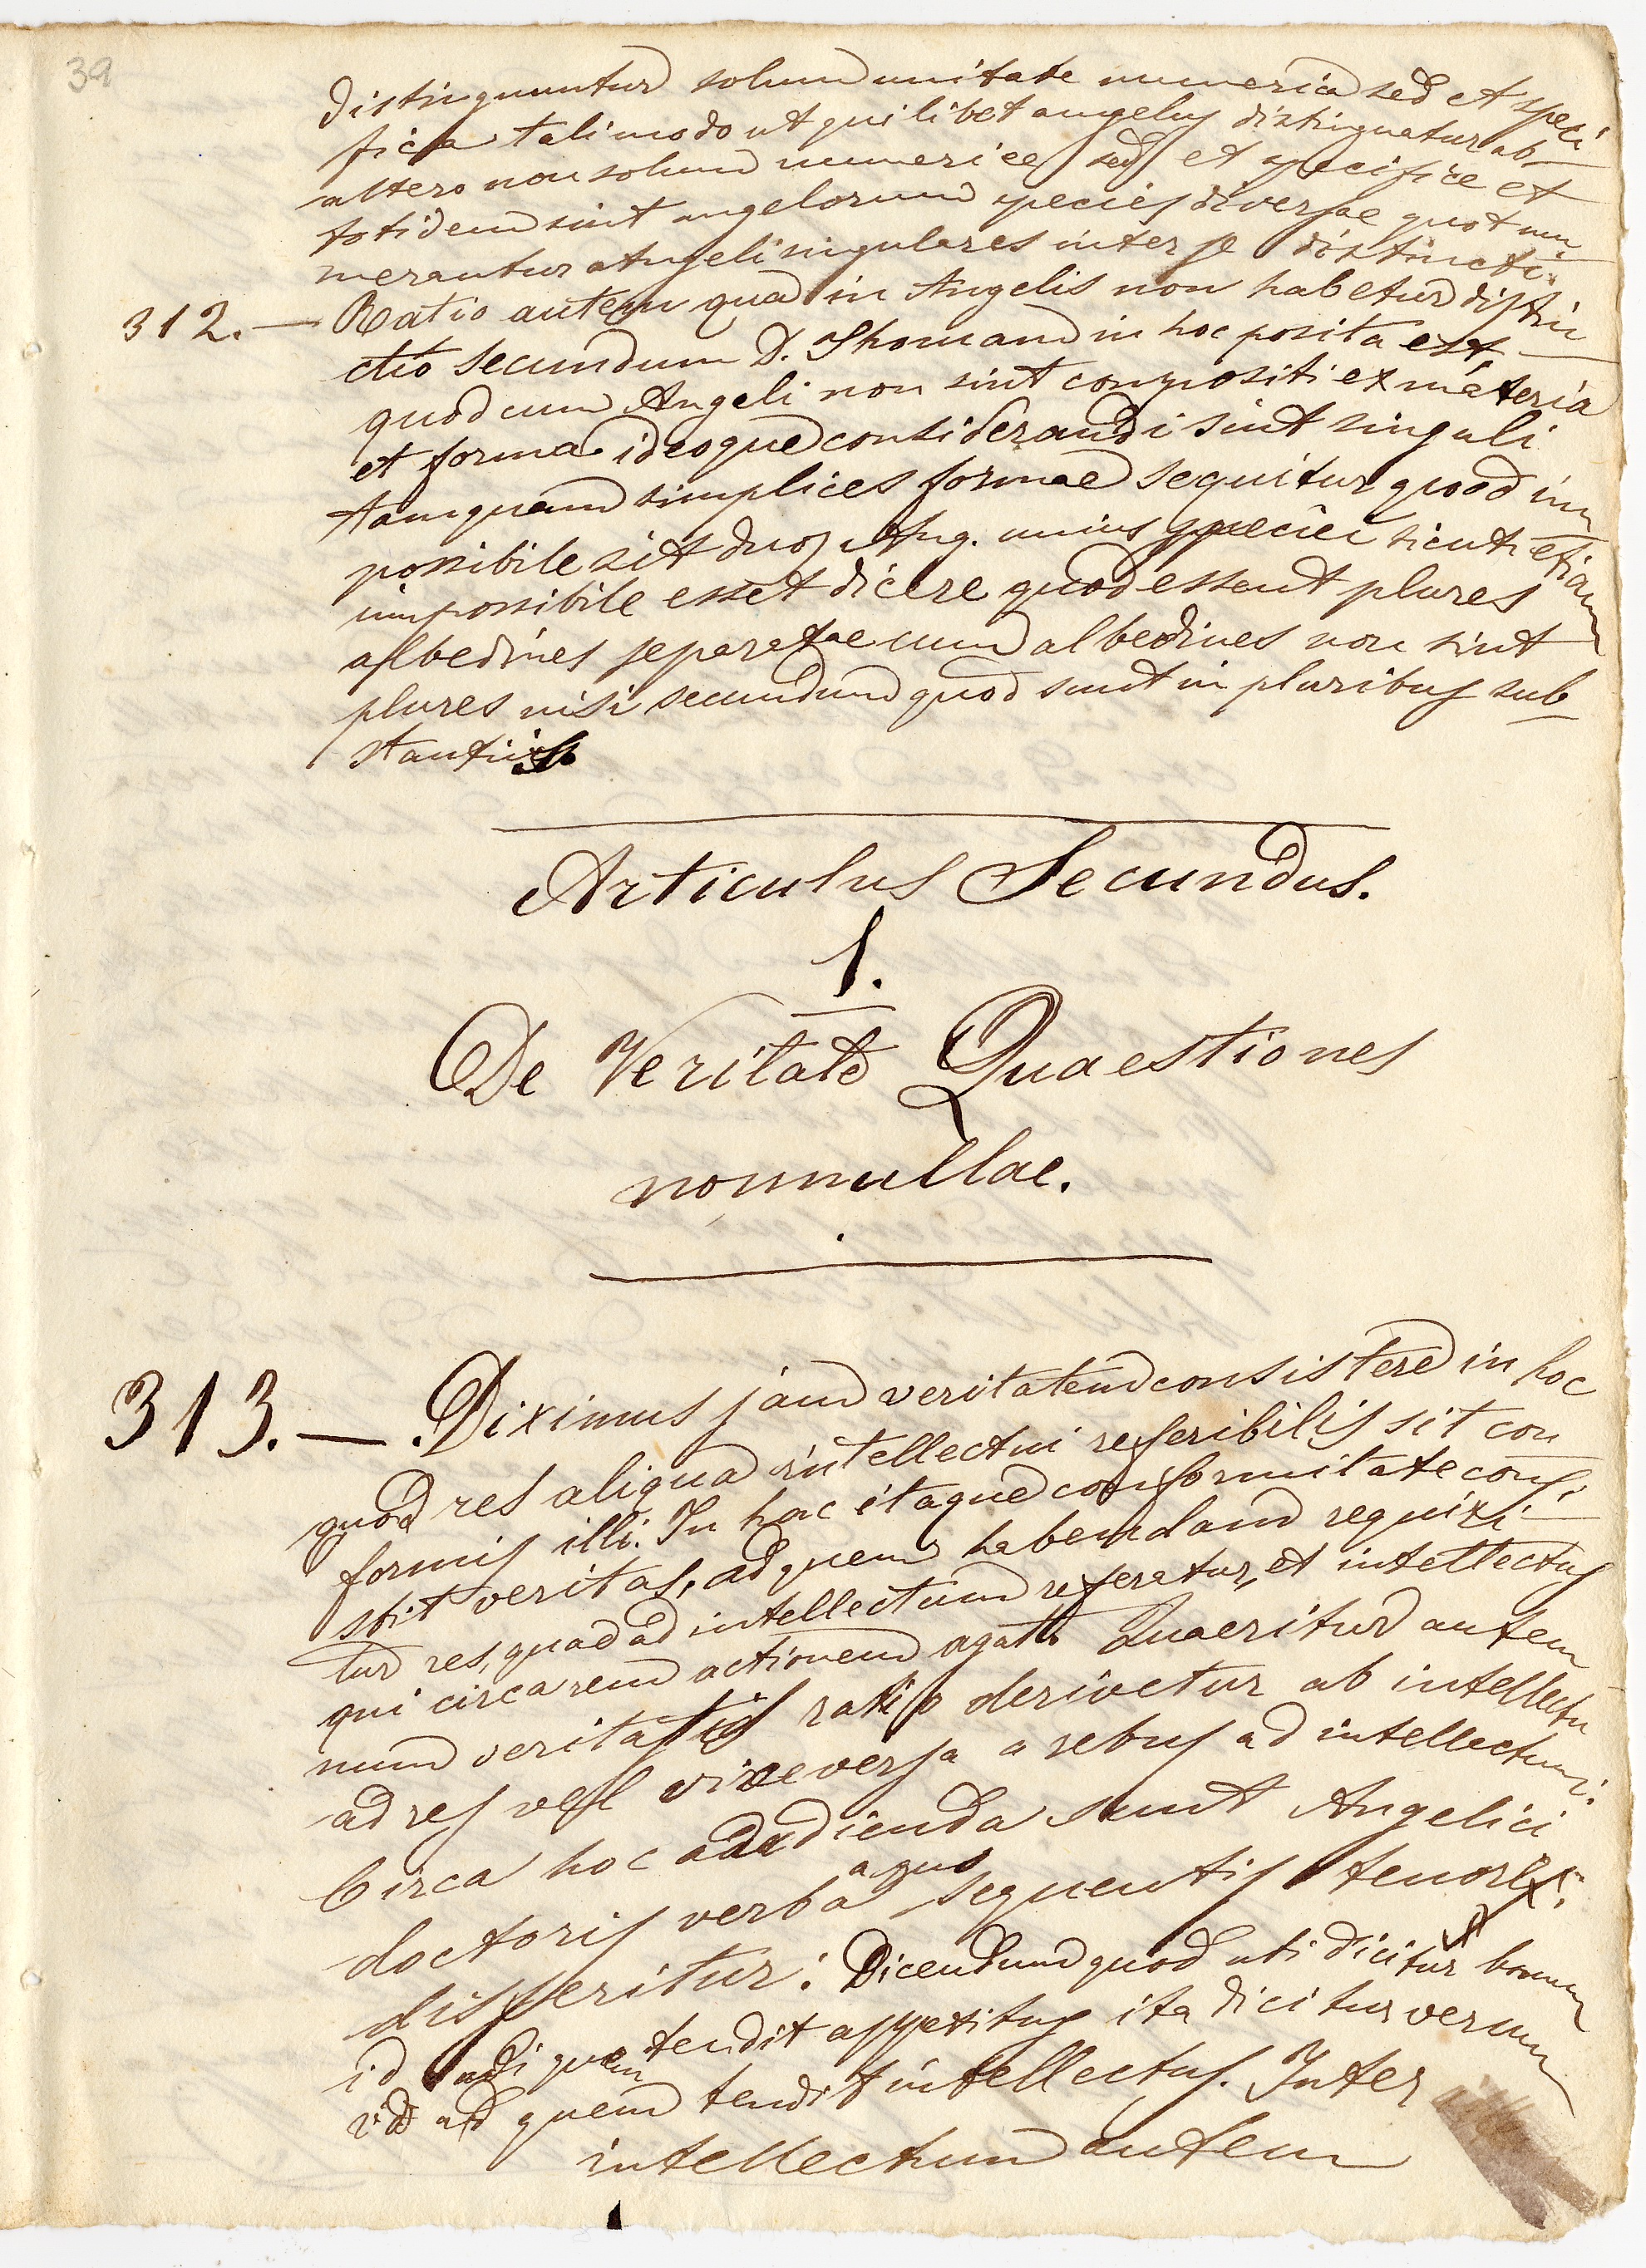 39
distinguuntur solum unitate numerica sed et speci
fica tali modo ut quilibet angelus distinguatur ab
altero non solum numerice sed et specifice et
totidem sint angelorum species diversae quot nu
merantur Angeli singulares inter se distincti.
312. — Ratio autem qua in Angelis non habetur distin
ctio secundum D. Thomam in hoc posita est
quod cum Angeli non sint compositi ex materia
et forma ideoque considerandi sint singuli
tamquam simplices formae sequitur quod im
possibile sit duos Ang. unius speciei sicuti etiam
impossibile esset dicere quod essent plures
albedines separatae cum albedines non sint
plures nisi secundum quod sunt in pluribus sub
stantiis
Articulus Secundus.
1.
De Veritate Quaestiones
nonnullae.
313. — Diximus jam veritatem consistere in hoc
quod res aliqua intellectui referibilis sit con
formis illi. In hac itaque conformitate consi
stit veritas, ad quem habendam requiri
tur res, quae ad intellectum referatur, et intellectus
qui circa rem actionem agat. Quaeritur autem
num veritatis ratio derivetur ab intellectu
ad res vel viceversa a rebus ad intellectum.
Circa hoc audienda sunt Angelici
doctoris verba a quo sequentis tenoris
disseritur: Dicendum quod uti dicitur bonum
id in quem tendit appetitus ita dicitur verum
id ad quem tendit intellectus. Inter
intellectum autem